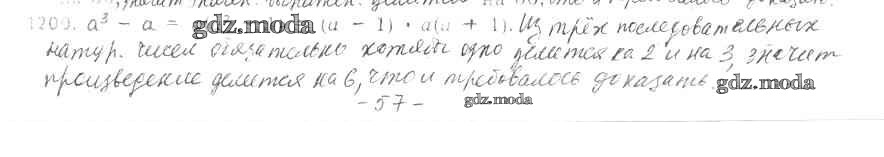 1200. a³ − a = gdz.moda (a − 1) · a(a + 1). Из трёх последовательных
натур. чисел обязательно хотябы одно делится на 2 и на 3, значит
произведение делится на 6, что и требовалось доказать. gdz.moda
- 57 - gdz.moda